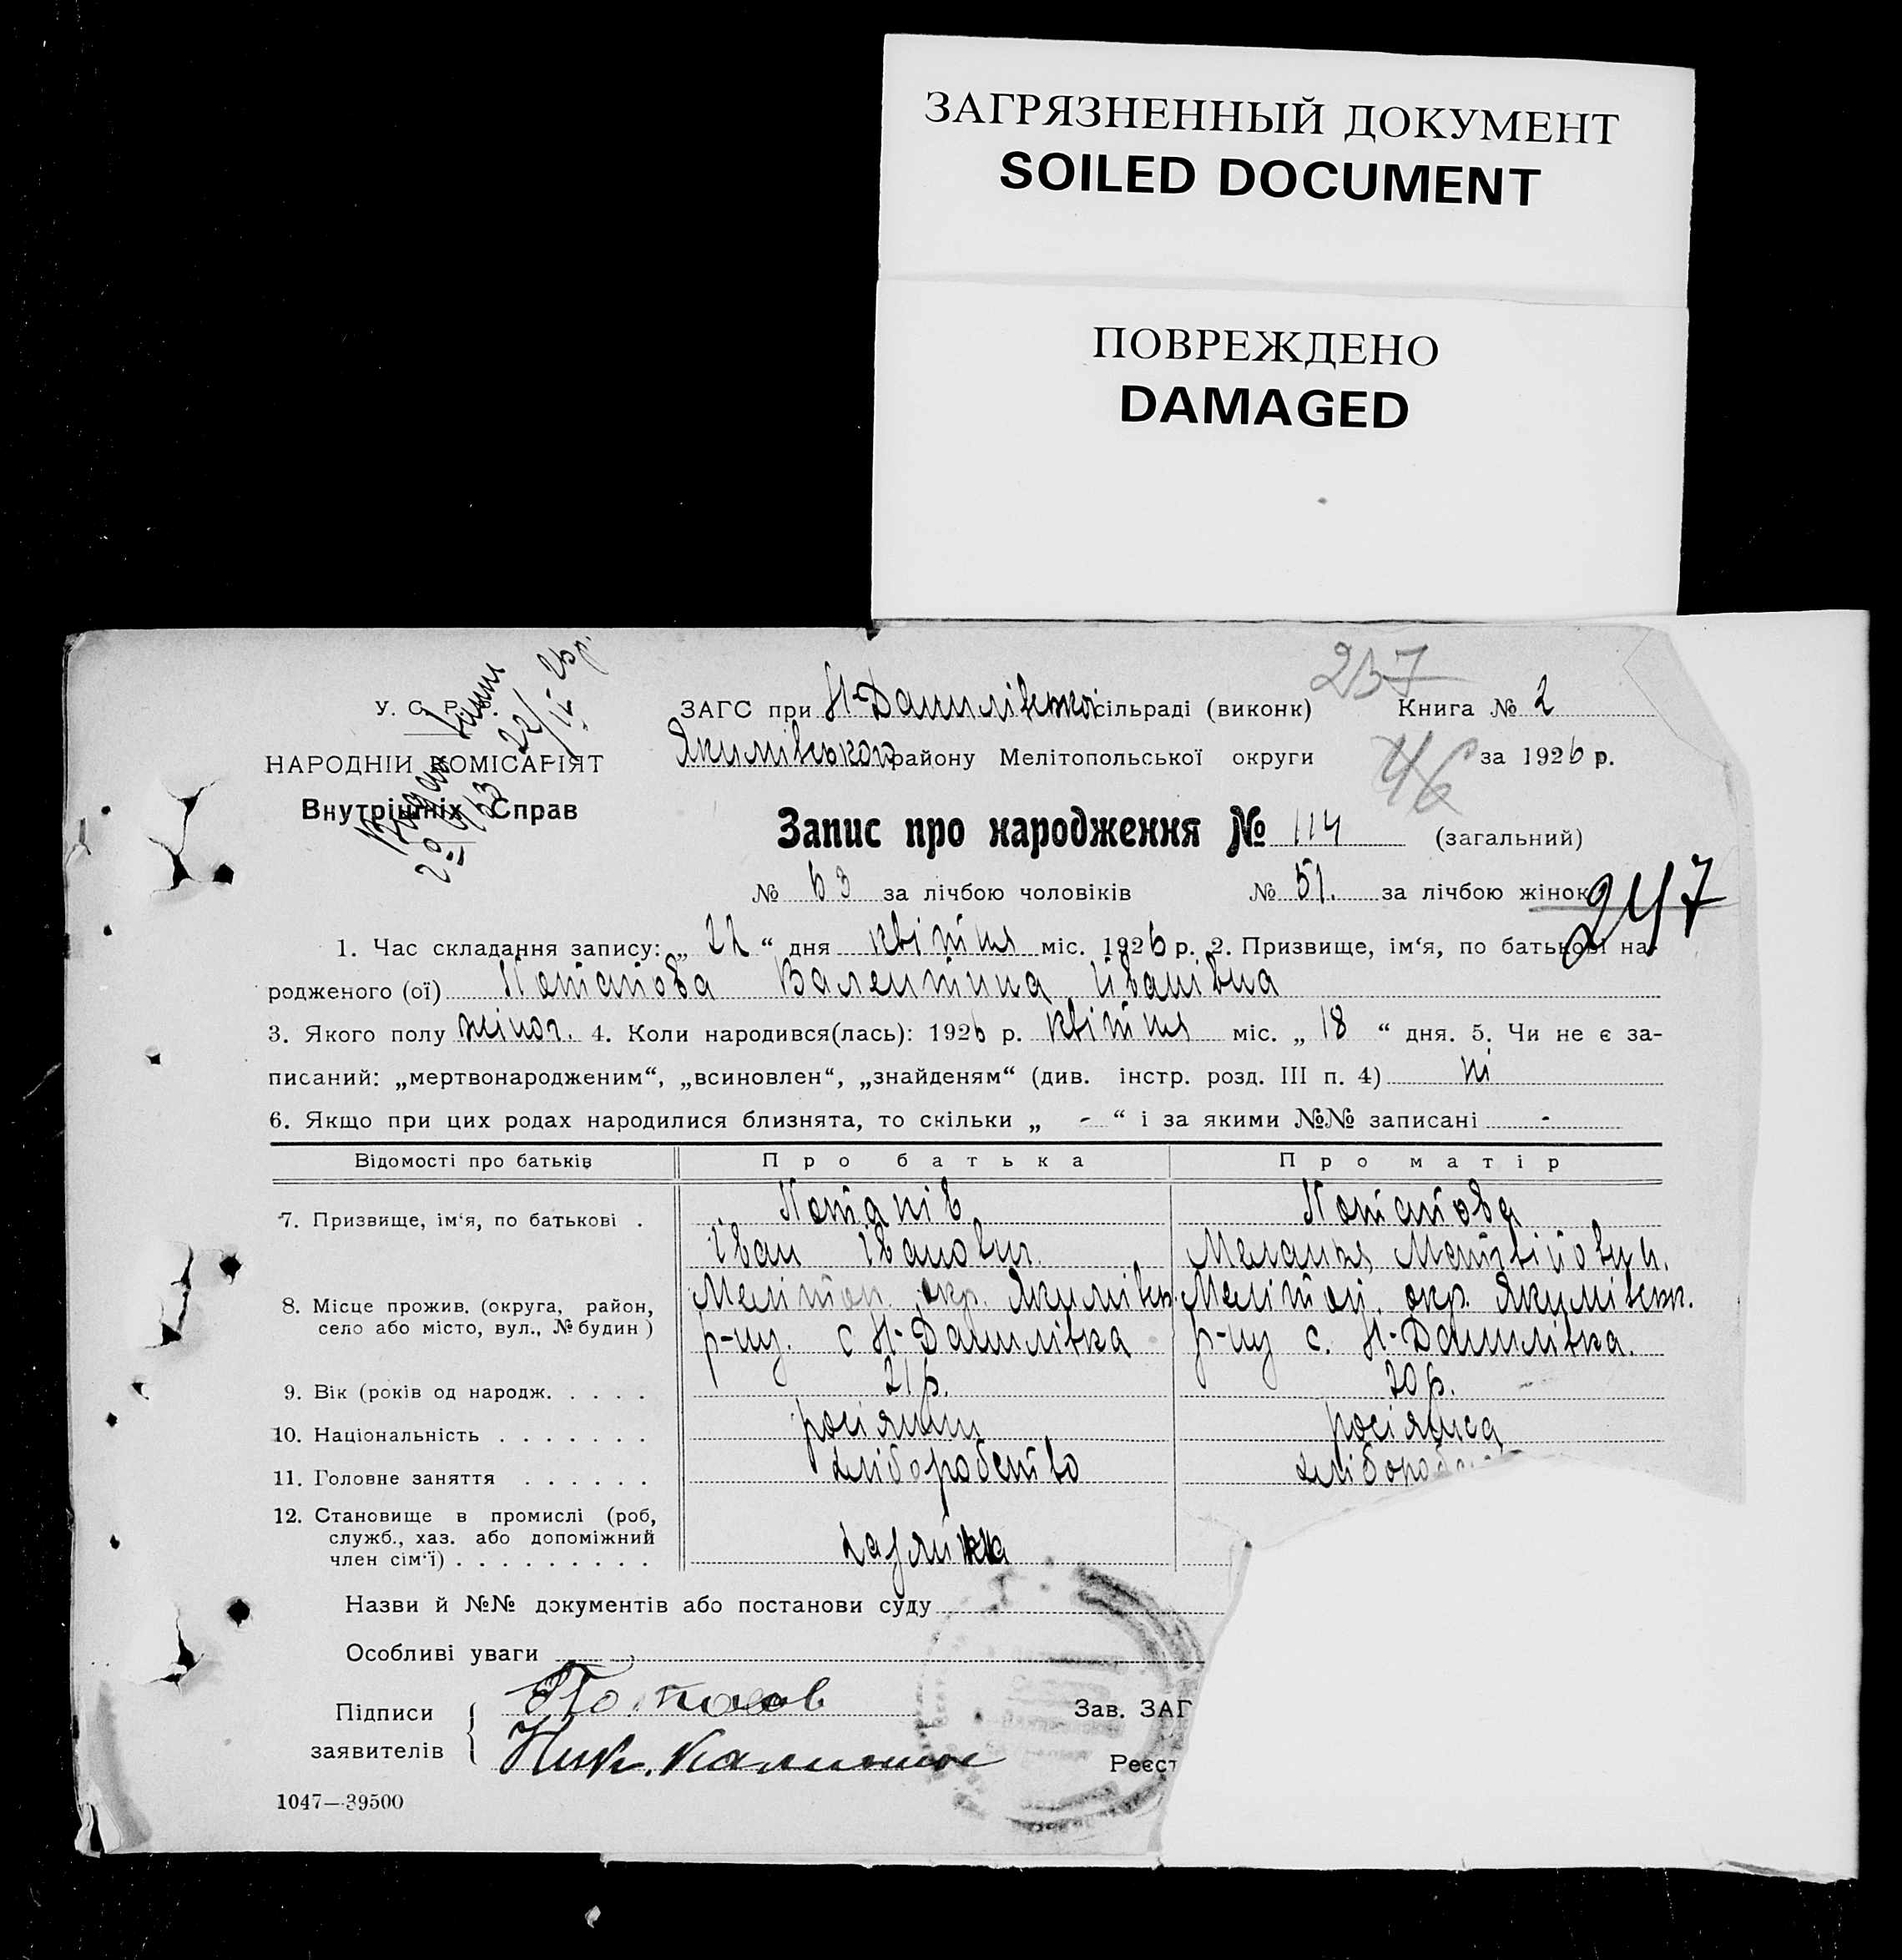 ЗАГРЯЗНЕННЫЙ ДОКУМЕНТ
SOILED DOCUMENT
ПОВРЕЖДЕНО
DAMAGED
237
У. С. Р. Р.
ЗАГС при Н-Данилівській сільраді (виконк) Книга № 2
НАРОДНІЙ КОМІСАРІЯТ
Якимівського району Мелітопольської округи 46 за 1926 р.
Внутрішніх Справ
Запис про народження № 114 (загальний)
№ 63 за лічбою чоловіків № 51. за лічбою жінок 247
1. Час складання запису: „ 22 “ дня квітня міс. 1926 р. 2. Призвище, ім‘я, по батькові на-
родженого (ої) Потапова Валентина Іванівна
3. Якого полу жіноч. 4. Коли народився(лась): 1926 р. квітня міс. „ 18 “ дня. 5. Чи не є за-
писаний: „мертвонародженим“, „всиновлен“, „знайденям“ (див. інстр. розд. III п. 4) ні
6. Якщо при цих родах народилися близнята, то скільки „ - “ і за якими №№ записані -
Відомості про батьків Про батька Про матір
7. Призвище, ім‘я, по батькові . Потапів Потапова
Іван Іванович. Меланія Матвійовн.
8. Місце прожив. (округа, район, Мелітоп. окр. Якимівськ. Мелітоп. окр. Якимівськ.
село або місто, вул., № будин) р-ну. с Н-Данилівка р-ну с. Н-Данилівка.
9. Вік (років од народж. . . . . 21 р. 20 р.
10. Національність . . . . . . . росіянин росіянка
11. Головне заняття . . . . . . хліборобство хлібороб
12. Становище в промислі (роб,
служб., хаз. або допоміжний
член сім‘ї) . . . . . . . . . хазяйка
Назви й №№ документів або постанови суду
Особливі уваги
Підписи Потапов Зав. ЗАГ
заявителів Ник. Реєст
1047—39500